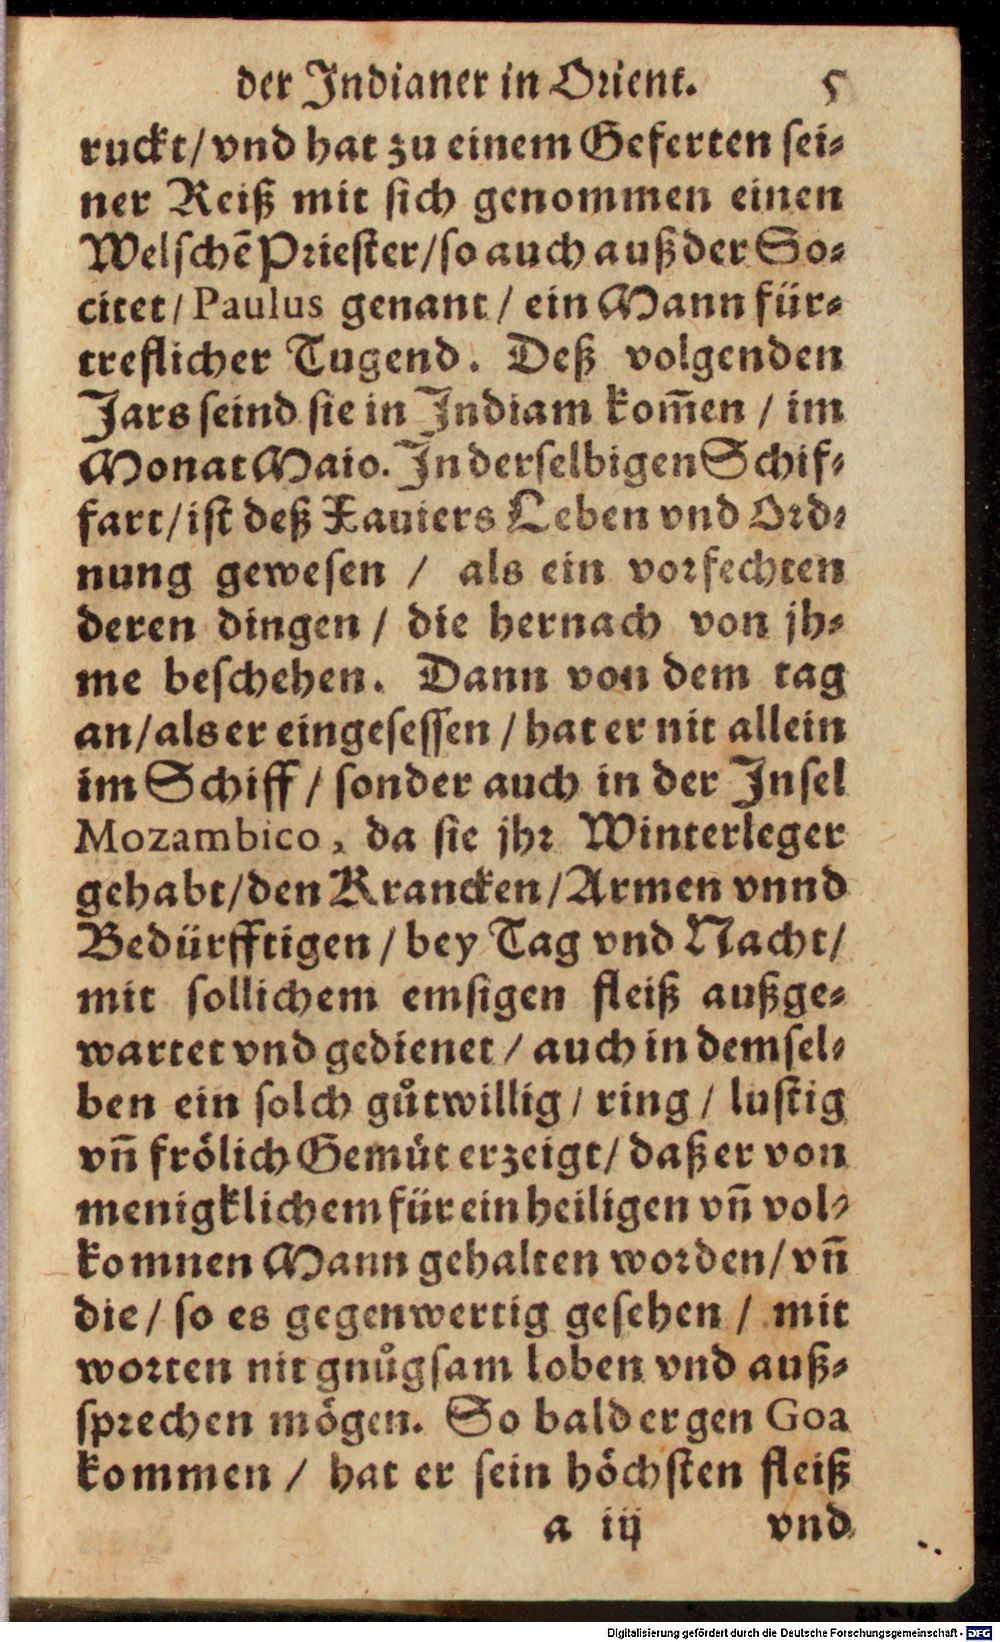 der Indianer in Orient. 5
ruckt/ vnd hat zu einem Geferten sei-
ner Reiß mit sich genommen einen
Welschē Priester/ so auch auß der So-
citet/ Paulus genant/ ein Mann für-
treflicher Tugend. Deß volgenden
Jars seind sie in Indiam kom̄en / im
Monat Maio. In derselbigen Schif-
fart/ ist deß Xauiers Leben vnd Ord-
nung gewesen / als ein vorfechten
deren dingen / die hernach von jh-
me beschehen. Dann von dem tag
an/ als er eingesessen / hat er nit allein
im Schiff / sonder auch in der Insel
Mozambico, da sie jhr Winterleger
gehabt/ den Krancken/ Armen vnnd
Bedürfftigen / bey Tag vnd Nacht/
mit sollichem emsigen fleiß außge-
wartet vnd gedienet / auch in demsel-
ben ein solch gůtwillig/ ring / lustig
vn̄ frölich Gemüt erzeigt/ daß er von
menigklichem für ein heiligen vn̄ vol-
komnen Mann gehalten worden/ vn̄
die/ so es gegenwertig gesehen / mit
worten nit gnůgsam loben vnd auß-
sprechen mögen. So bald er gen Goa
kommen / hat er sein höchsten fleiß
a iij vnd
Digitalisierung gefördert durch die Deutsche Forschungsgemeinschaft - DFG